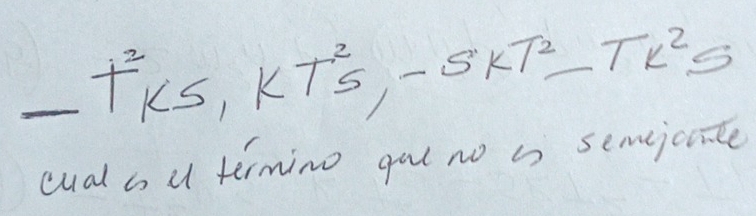 _ T²KS, KT²S, -SKT² _ TK²S
cual es el término que no es semejante